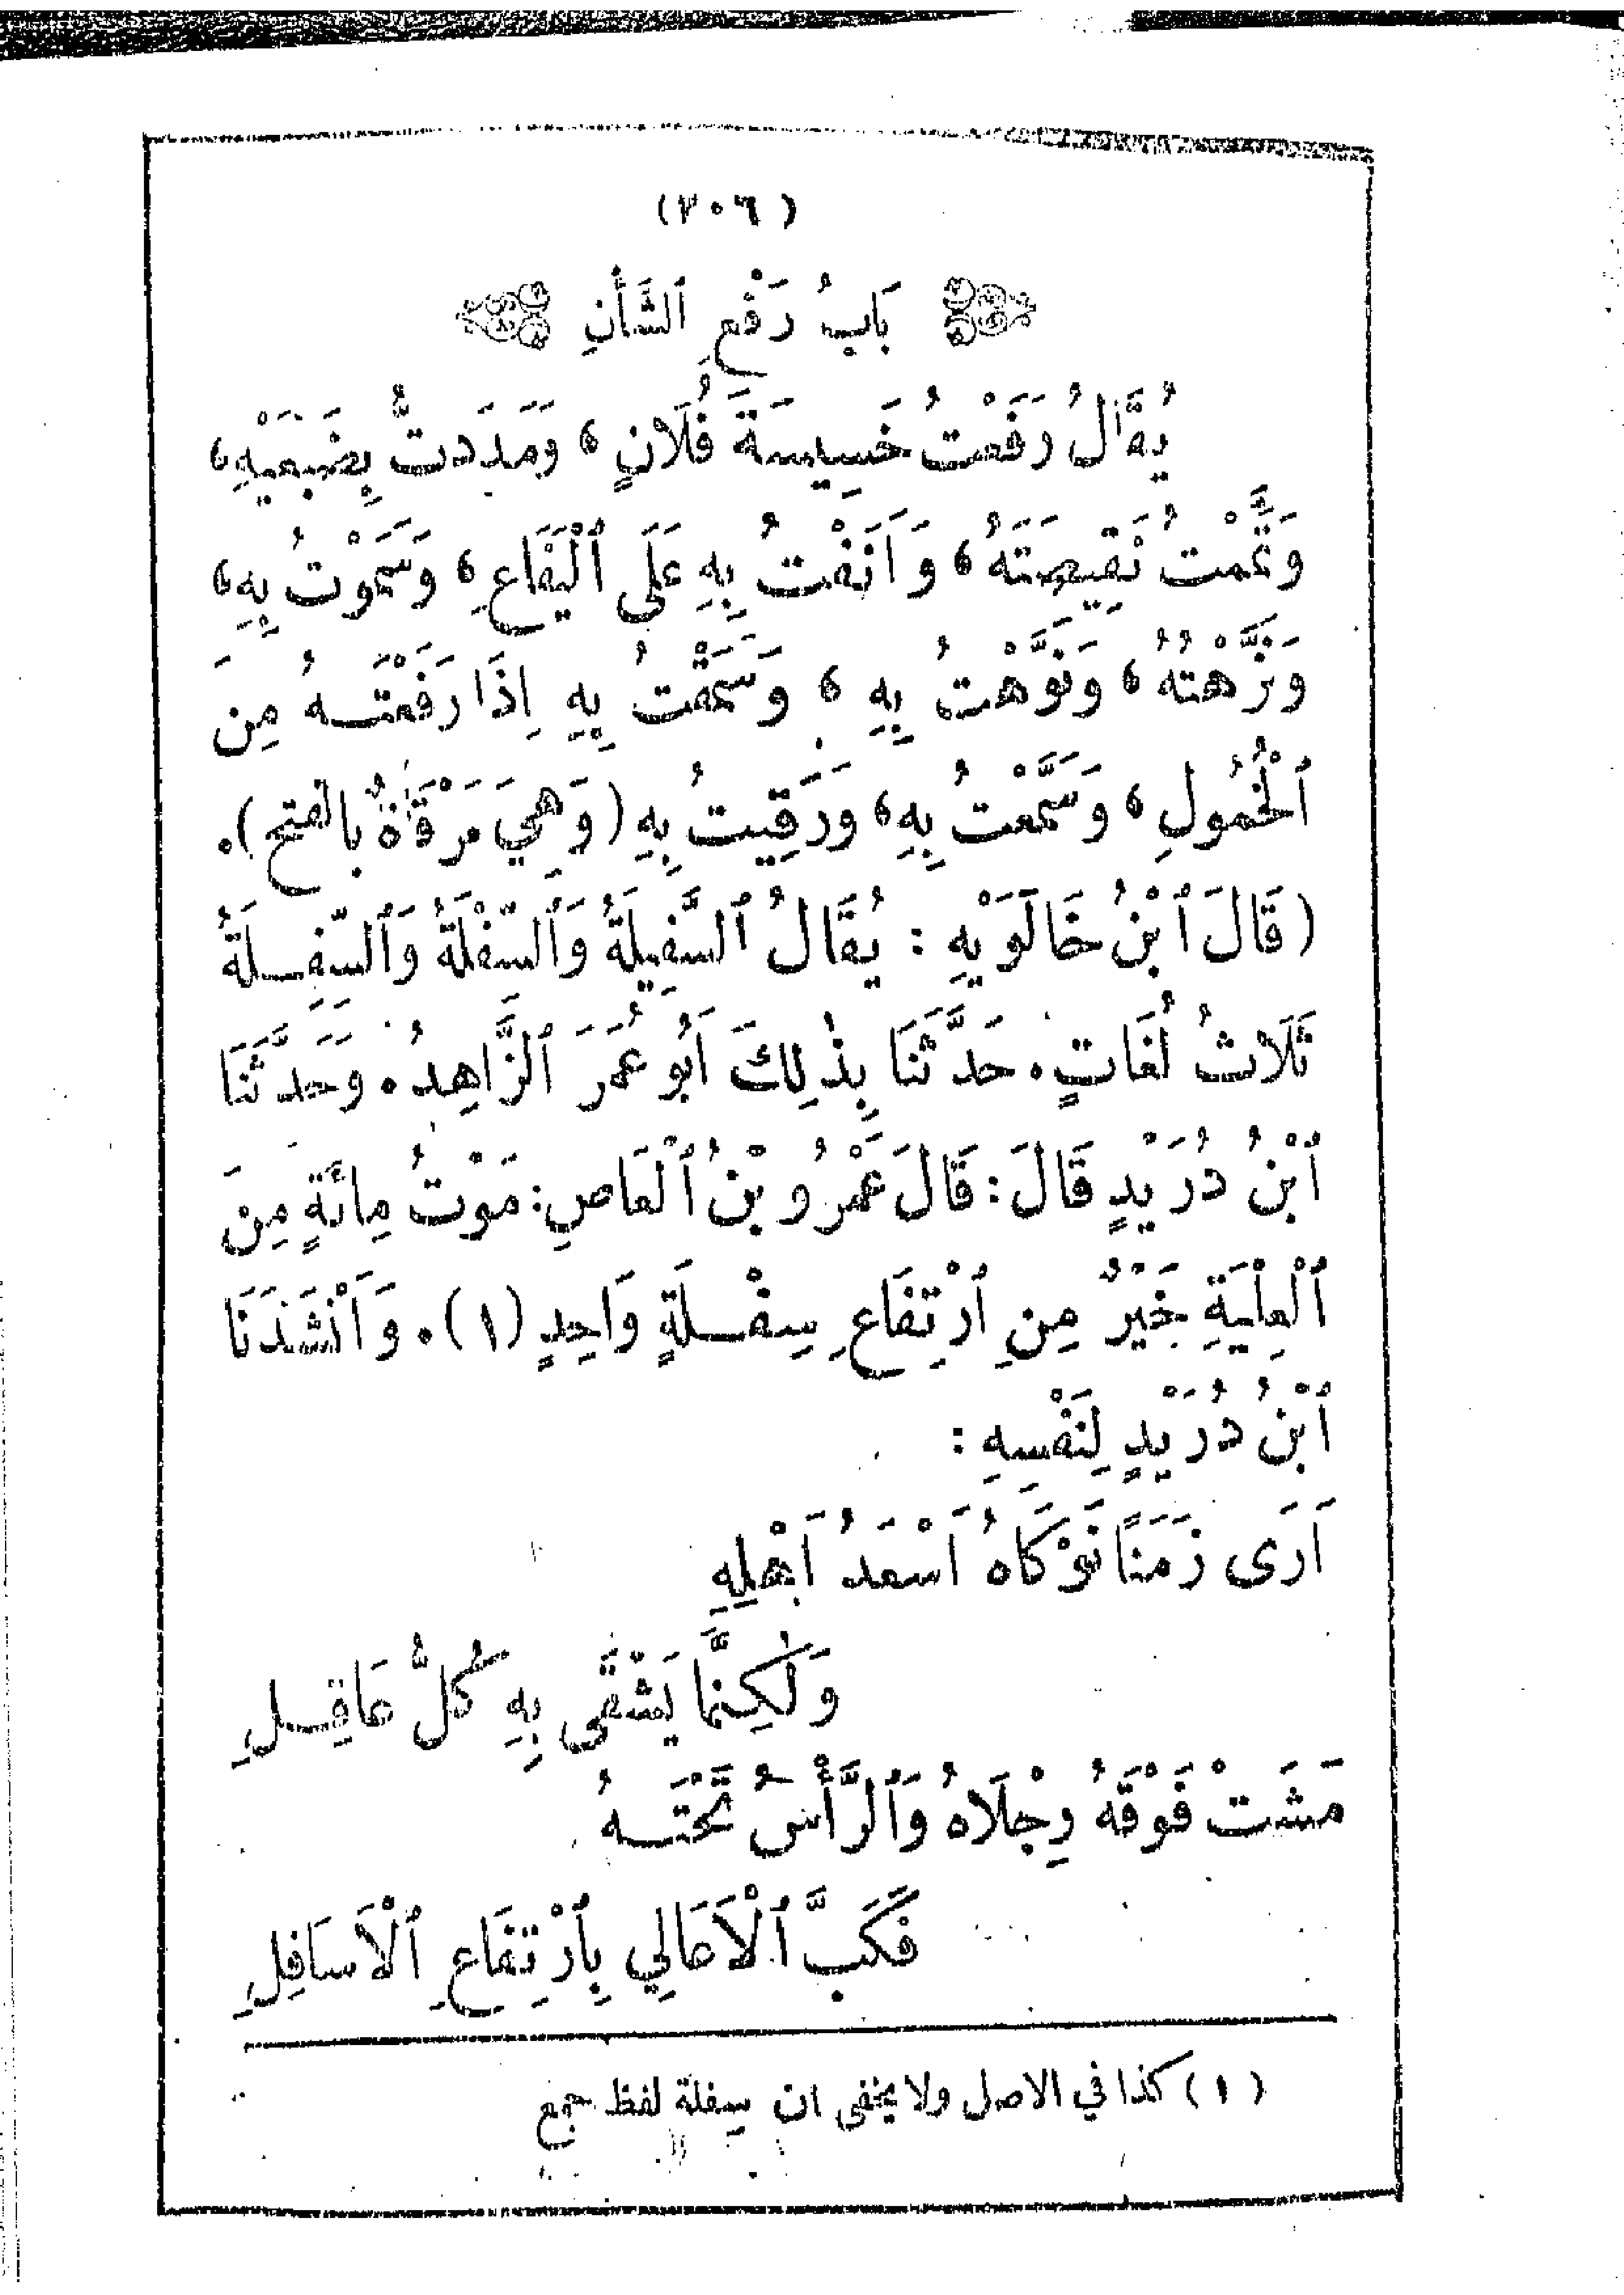 (٢٠٦)
بَابُ رَفْعِ ٱلشَّأْنِ
يُقَالُ رَفَعْتُ خَسِيسَةَ فُلَانٍ، وَمَدَدتُّ بِضَبْعَيْهِ،
وَتَمَّمْتُ نَقِيصَتَهُ، وَاَنَفْتُ بِهِ عَلَى ٱلْيَفَاعِ، وَسَمَوْتُ بِهِ،
وَنَزَّهْتُهُ، وَنَوَّهْتُ بِهِ، وَسَمَقْتُ بِهِ اِذَا رَفَعْتَهُ مِنَ
ٱلْخُمُولِ، وَسَمَّعْتُ بِهِ، وَرَقِيتُ بِهِ (وَهِيَ مَرْقَاةٌ بالفتح).
(قَالَ ٱبْنُ خَالَوَيْهِ: يُقَالُ ٱلسَّفِيلَةُ وَٱلسِّفْلَةُ وَٱلسَّفِلَةُ
ثَلَاثُ لُغَاتٍ. حَدَّثَنَا بِذٰلِكَ اَبُو عُمَرَ ٱلزَّاهِدُ. وَحَدَّثَنَا
ٱبْنُ دُرَيْدٍ قَالَ: قَالَ عَمْرُو بْنُ ٱلْعَاصِ: مَوْتُ مِائَةٍ مِنَ
ٱلْعِلْيَةِ خَيْرٌ مِنِ ٱرْتِفَاعِ سِفْلَةٍ وَاحِدٍ (١). وَاَنْشَدَنَا
ٱبْنُ دُرَيْدٍ لِنَفْسِهِ:
اَرَى زَمَنًا نَوْكَاهُ اَسْعَدُ اَهْلِهِ
وَلٰكِنَّمَا يَشْقَى بِهِ كُلُّ عَاقِلِ
مَشَتْ فَوْقَهُ رِجْلَاهُ وَٱلرَّأْسُ تَحْتَهُ
فَكَبَّ ٱلْاَعَالِي بِٱرْتِفَاعِ ٱلْاَسَافِلِ
(١) كذا في الاصل ولا يخفى ان سِفلة لفظ جمع